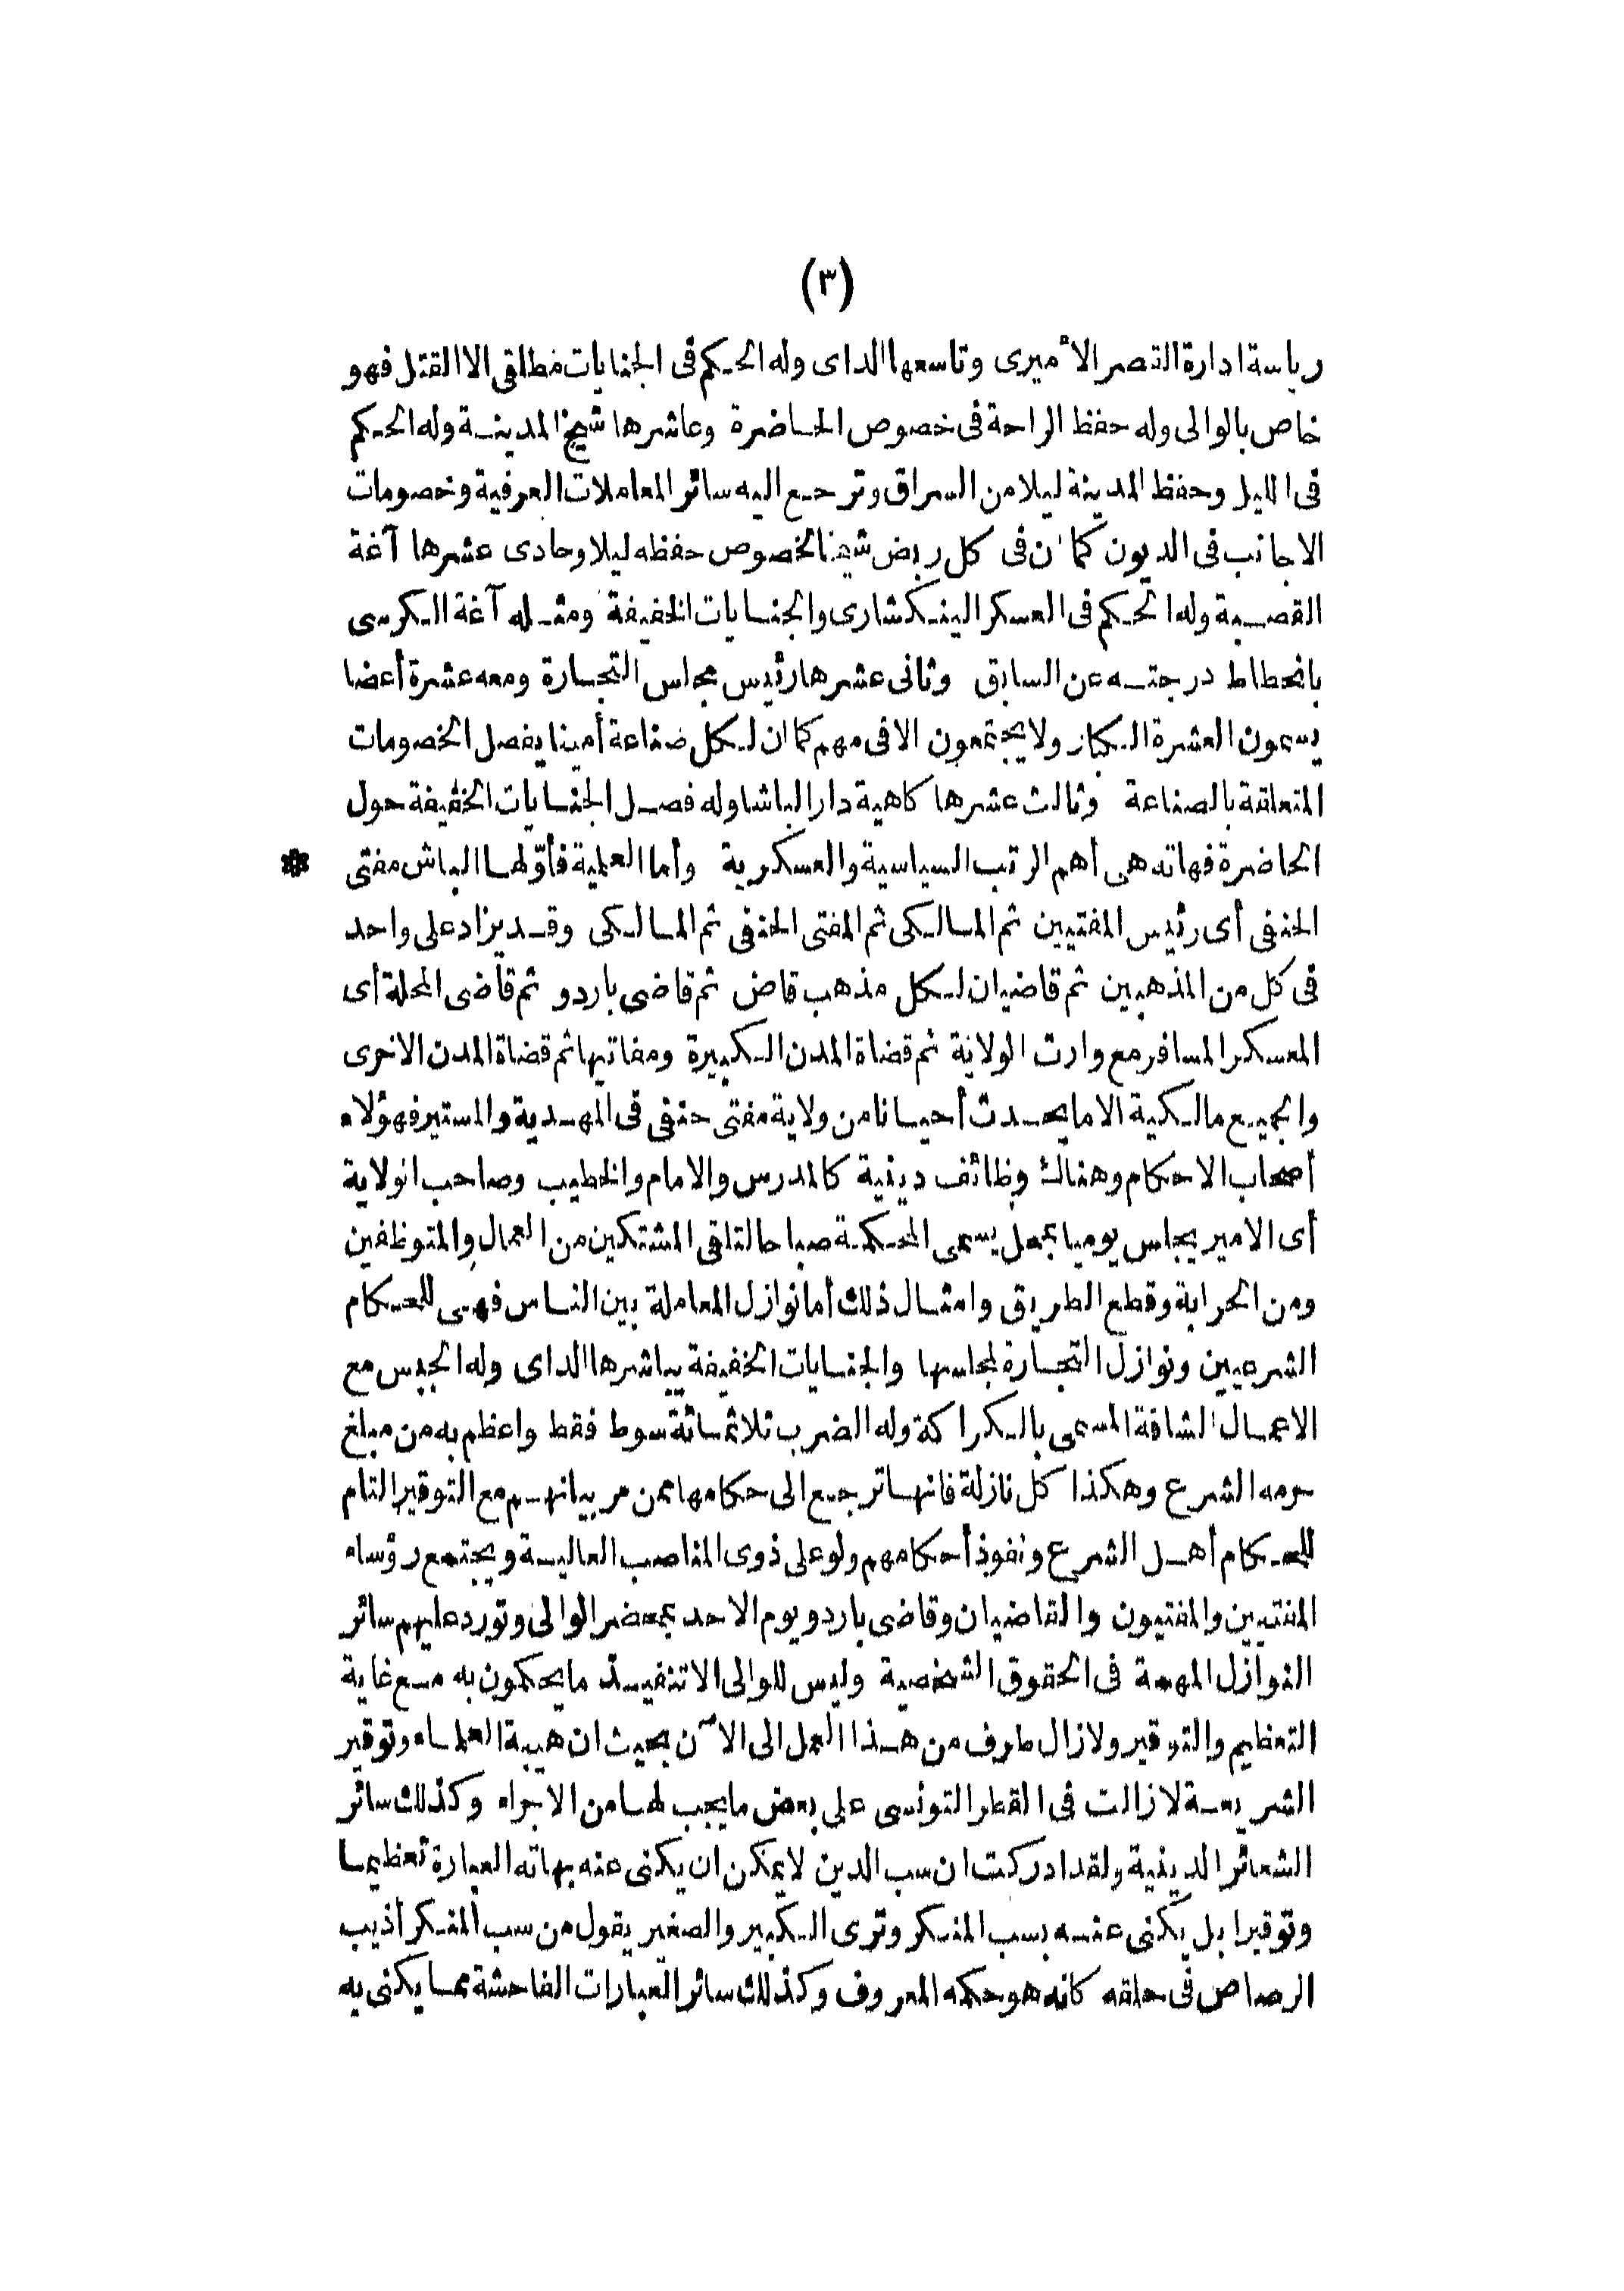 (٣)
رياسة ادارة القصر الأميرى وتاسعها الداى وله الحكم فى الجنايات مطلقا الا القتل فهو
خاص بالوالى وله حفظ الراحة فى خصوص الحاضرة وعاشرها شيخ المدينة وله الحكم
فى الليل وحفظ المدينة ليلا من السراق وترجع اليه سائر المعاملات العرفية وخصومات
الاجانب فى الديون كما ان فى كل ربض شيخا لخصوص حفظه ليلا وحادى عشرها آغة
القصبة وله الحكم فى العسكر الينكشارى والجنايات الخفيفة ومثله آغة الكرسى
بانحطاط درجته عن السابق وثانى عشرها رئيس مجلس التجارة ومعه عشرة أعضا
يسمون العشرة الكبار ولا يجتمعون الا فى مهم كما ان لكل صناعة أمينا يفصل الخصومات
المتعلقة بالصناعة وثالث عشرها كاهية دار الباشا وله فصل الجنايات الخفيفة حول
الحاضرة فهاته هى أهم الرتب السياسية والعسكرية وأما العلمية فأوّلها الباش مفتى *
الحنفى أى رئيس المفتيين ثم المالكى ثم المفتى الحنفى ثم المالكى وقد يزاد على واحد
فى كل من المذهبين ثم قاضيان لكل مذهب قاض ثم قاضى باردو ثم قاضى المحلة أى
المعسكر المسافر مع وارث الولاية ثم قضاة المدن الكبيرة ومفاتيها ثم قضاة المدن الاخرى
والجميع مالكية الا ما يحدث أحيانا من ولاية مفتى حنفى فى المهدية والمستير فهؤلاء
أصحاب الاحكام وهناك وظائف دينية كالمدرس والامام والخطيب وصاحب الولاية
أى الامير يجلس يوميا بمحل يسمى المحكمة صباحا لتلقى المشتكين من العمال والمتوظفين
ومن الحرابة وقطع الطريق وامثال ذلك أما نوازل المعاملة بين الناس فهى للحكام
الشرعيين ونوازل التجارة لمجلسها والجنايات الخفيفة يباشرها الداى وله الحبس مع
الاعمال الشاقة المسمى بالكراكة وله الضرب ثلاثمائة سوط فقط واعظم به من مبلغ
سومه الشرع وهكذا كل نازلة فانها ترجع الى حكامها ممن مر بيانهم مع التوقير التام
للحكام أهل الشرع ونفوذ أحكامهم ولو على ذوى المناصب العالية ويجتمع رؤساء
المفتيين والمفتيون والقاضيان وقاضى باردو يوم الاحد بمحضر الوالى وتورد عليهم سائر
النوازل المهمة فى الحقوق الشخصية وليس للوالى الا تنفيذ ما يحكمون به مع غاية
التعظيم والتوقير ولا زال طرف من هذا العمل الى الآن بحيث ان هيبة العلماء وتوقير
الشريعة لا زالت فى القطر التونسى على بعض ما يجب لها من الاجراء وكذلك سائر
الشعائر الدينية ولقد ادركت ان سب الدين لا يمكن ان يكنى عنه بهاته العبارة تعظيما
وتوقيرا بل يكنى عنه بسب المنكر وترى الكبير والصغير يقول من سب المنكر أذيب
الرصاص فى حلقه كانه هو حكمه المعروف وكذلك سائر العبارات الفاحشة مما يكنى به